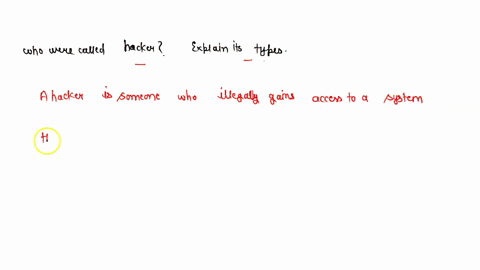 who were called hacker? Explain its types.
A hacker is someone who illegally gains access to a system
H